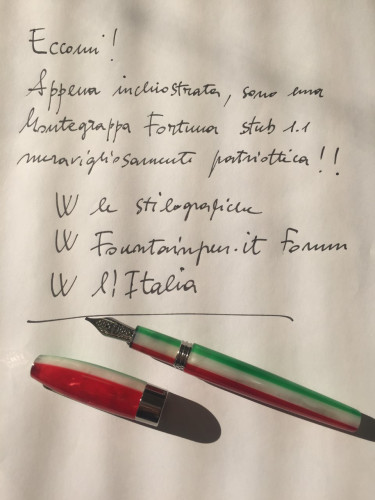 Eccomi!
Appena inchiostrata, sono una
Montegrappa Fortuna stub 1.1
meravigliosamente patriottica!!
W le stilografiche
W Fountainpen.it Forum
W l'Italia